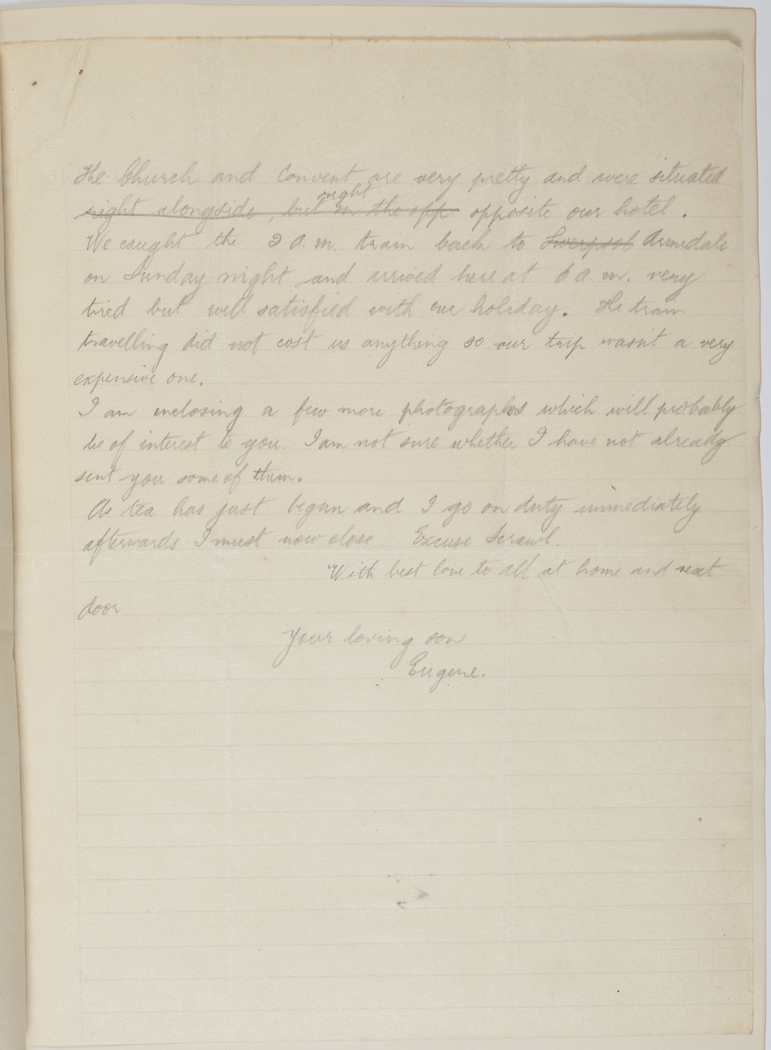 The Church and Convent are very pretty and were situated
right
right alongside, but on the opp opposite our hotel.
We caught the 2 a.m. train back to Liverpool Armidale
on Sunday night and arrived here at 6 a.m. very
tired but well satisfied with our holiday. The train
travelling did not cost us anything so our trip wasn't a very
expensive one.
I am enclosing a few more photographs which will probably
be of interest to you. I am not sure whether I have not already
sent you some of them.
As tea has just began and I go on duty immediately
afterwards I must now close Excuse Scrawl.
With best love to all at home and next
door
Your loving son
Eugene.